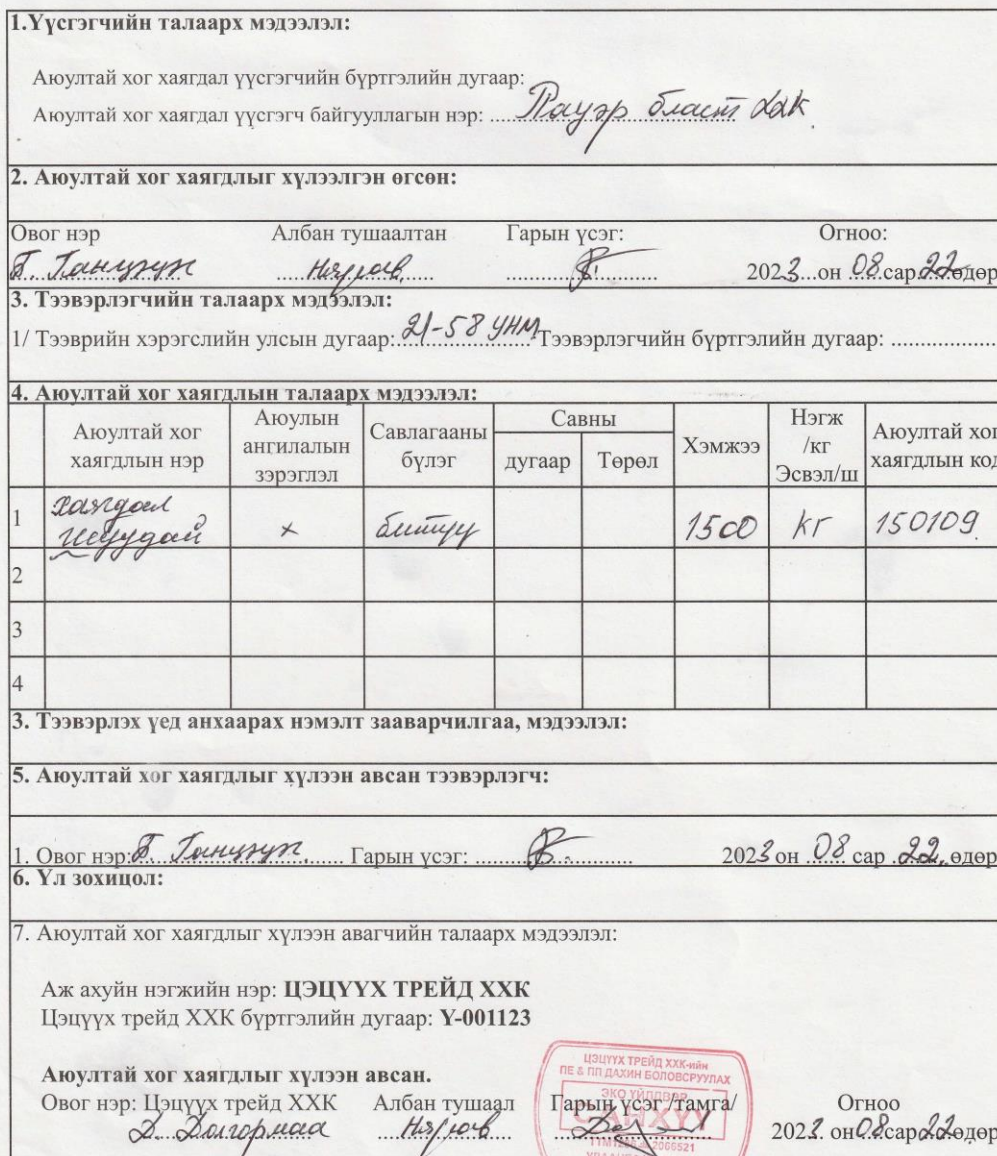 1.Үүсгэгчийн талаарх мэдээлэл:
Аюултай хог хаягдал үүсгэгчийн бүртгэлийн дугаар:
Аюултай хог хаягдал үүсгэгч байгууллагын нэр: ..... Пауэр бласт ХХК
2. Аюултай хог хаягдлыг хүлээлгэн өгсөн:
Овог нэр Албан тушаалтан Гарын үсэг: Огноо:
Б. Ганцэцэг Нярав 2023 он 08 сар 22 өдөр
3. Тээвэрлэгчийн талаарх мэдээлэл:
1/ Тээврийн хэрэгслийн улсын дугаар: 21-58 УНМ Тээвэрлэгчийн бүртгэлийн дугаар: ..................
4. Аюултай хог хаягдлын талаарх мэдээлэл:
Аюултай хог хаягдлын нэр Аюулын ангилалын зэрэглэл Савлагааны бүлэг Савны дугаар Төрөл Хэмжээ Нэгж /кг Эсвэл/ш Аюултай хог хаягдлын код
1 хаягдал шуудай x битүү 1500 кг 150109
2
3
4
3. Тээвэрлэх үед анхаарах нэмэлт зааварчилгаа, мэдээлэл:
5. Аюултай хог хаягдлыг хүлээн авсан тээвэрлэгч:
1. Овог нэр: Б. Гарын үсэг: 2023 он 08 сар 22 өдөр
6. Үл зохицол:
7. Аюултай хог хаягдлыг хүлээн авагчийн талаарх мэдээлэл:
Аж ахуйн нэгжийн нэр: ЦЭЦҮҮХ ТРЕЙД ХХК
Цэцүүх трейд ХХК бүртгэлийн дугаар: Ү-001123
ЦЭЦҮҮХ ТРЕЙД ХХК-ийн
ПЕ & ПП ДАХИН БОЛОВСРУУЛАХ
ЭКО ҮЙЛДВЭР
Аюултай хог хаягдлыг хүлээн авсан.
Овог нэр: Цэцүүх трейд ХХК Албан тушаал Гарын үсэг /тамга/ Огноо
САНХҮҮ
Д. Долгормаа Нярав 2023 он 08 сар 22 өдөр